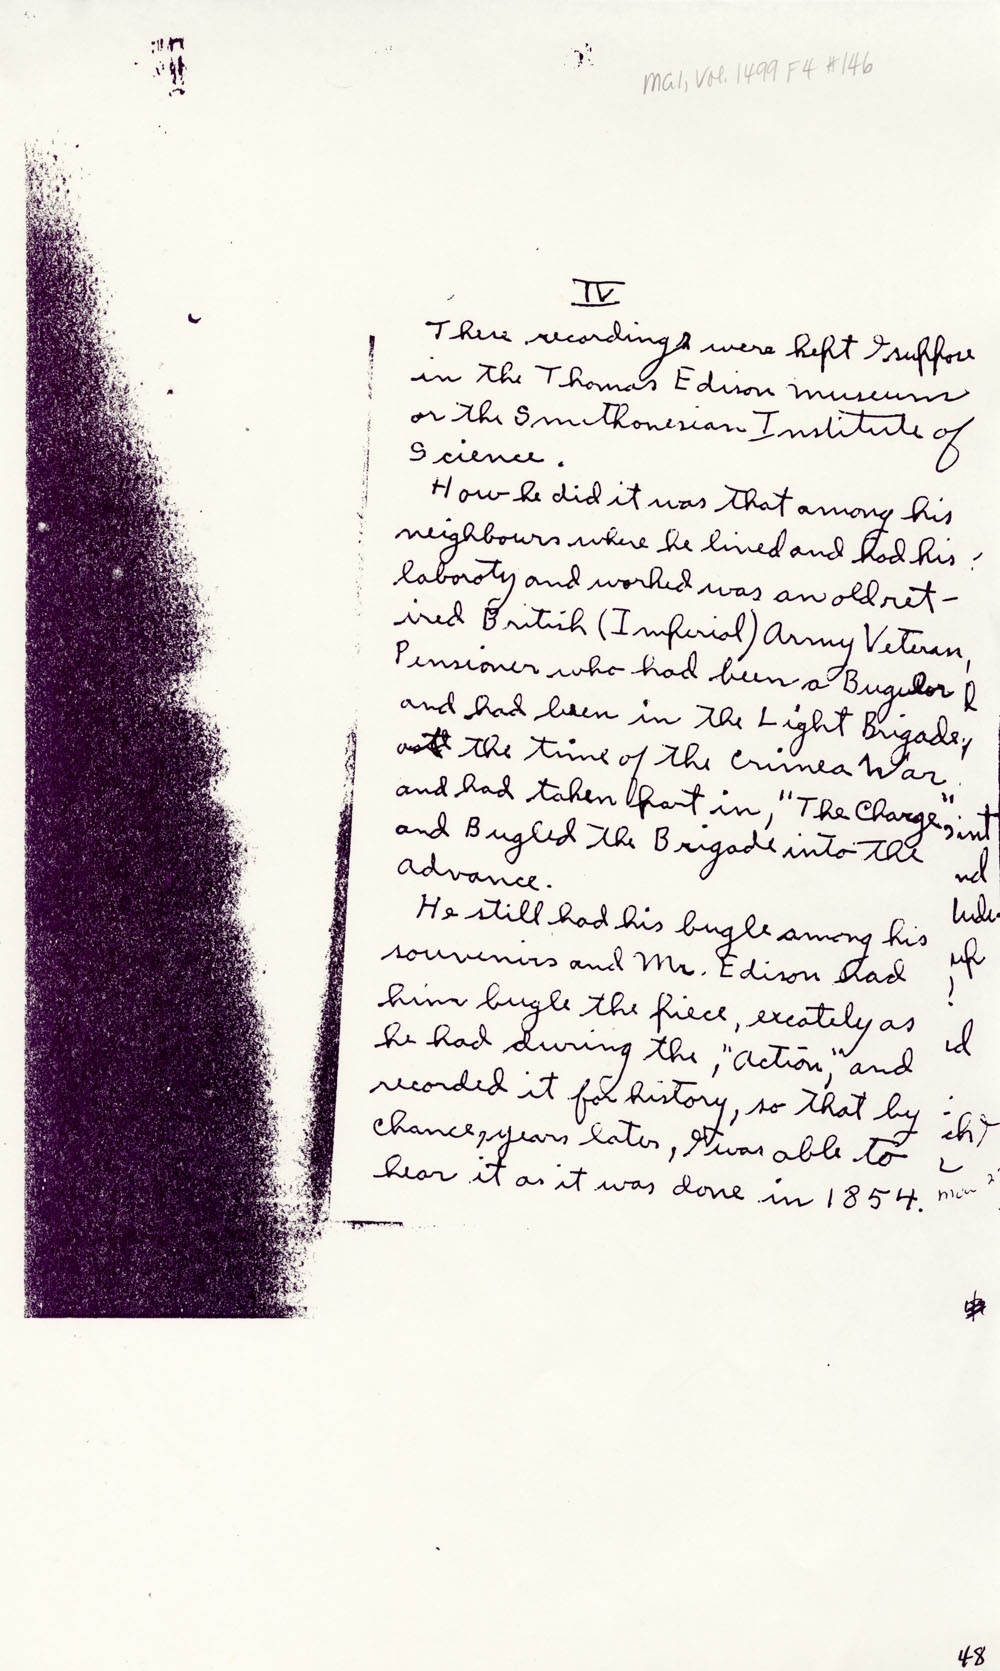 MG1, Vol. 1499 F4 #146
IV
These recordings were kept I suppose
in the Thomas Edison museum
or the Smithonesian Institute of
Science.
How he did it was that among his
neighbours where he lived and had his
laboroty and worked was an old ret-
ired British (Imperial) Army Veteran,
Pensioner who had been a Bugulor
and had been in the Light Brigade,
at the time of the Crimea War
and had taken part in, "The Charge",
and Bugled the Brigade into the
advance.
He still had his bugle among his
souvenirs and Mr. Edison had
him bugle the piece, excately as
he had during the, "Action," and
recorded it for history, so that by
chance, years later, I was able to
hear it as it was done in 1854.
48